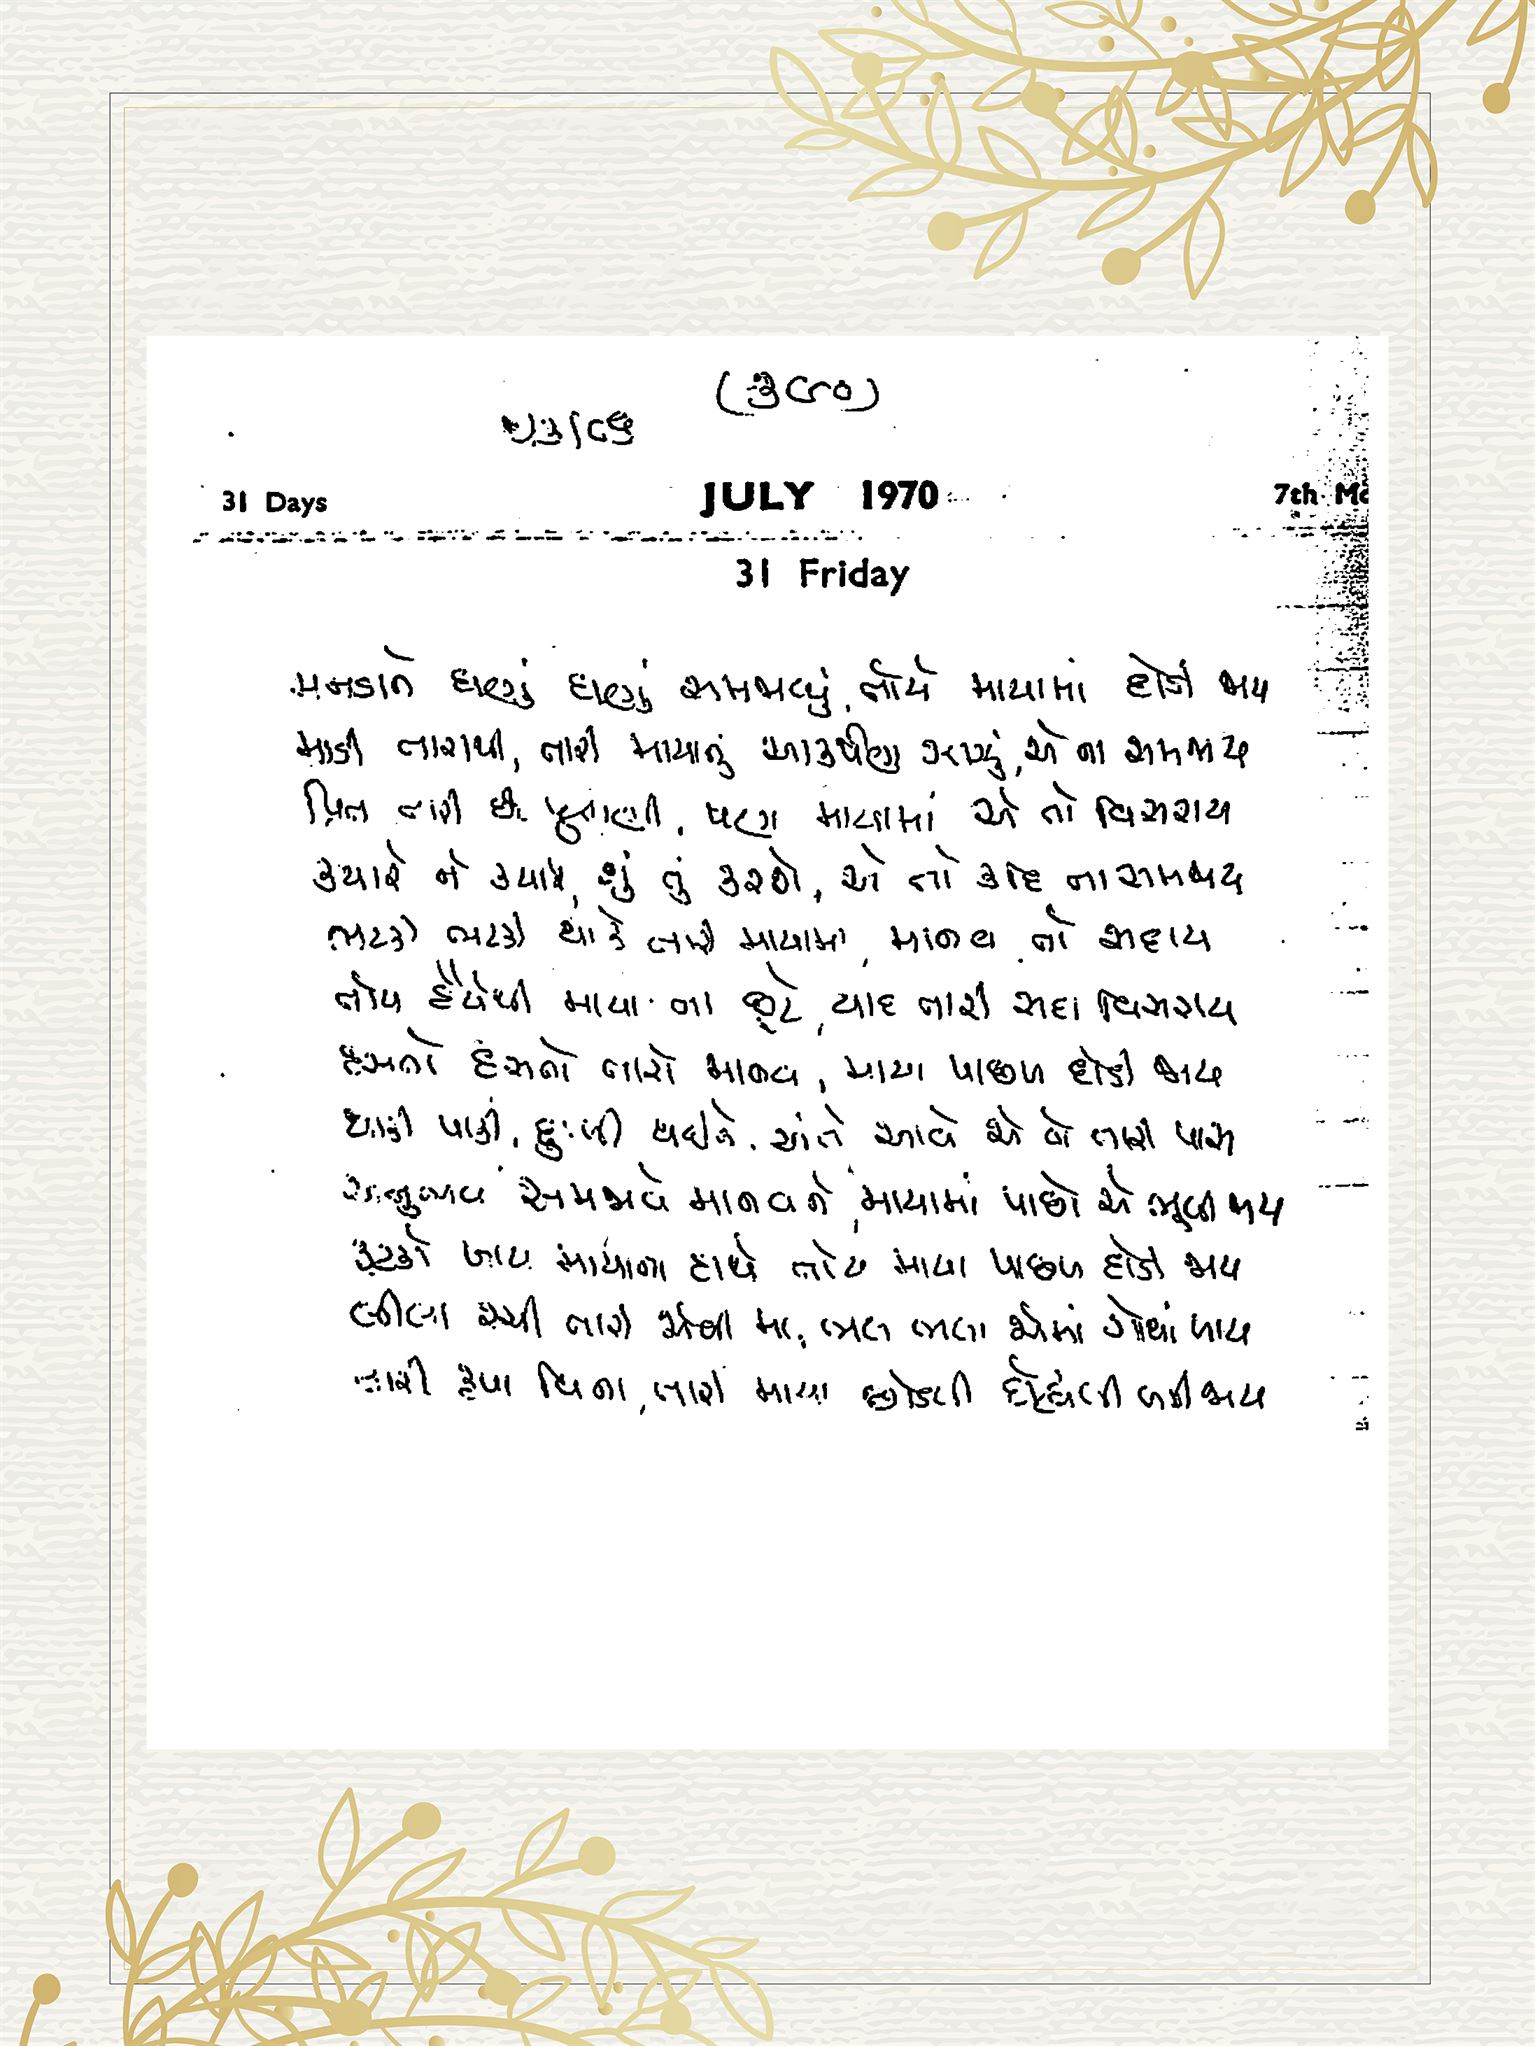 (૩૯૦)
31 Days JULY 1970 7th Mo
31 Friday
મનડાને ઘણું ઘણું સમજાવ્યું, તોયે માયામાં દોડી જાય
માડી તારાથી, તારી માયાનું આકર્ષણ ઝાઝું, એ ના સમજાય
પ્રિત તારી છે પુરાણી, પણ માયામાં એ તો વિસરાય
ક્યારે ને ક્યારે, શું તું કરશે, એ તો કદિ ના સમજાય
ભટકી ભટકી થાકે તારી માયામાં, માનવ તો સદાય
તોય હૈયેથી માયા ના છૂટે, યાદ તારી સદા વિસરાય
હસતો હસતો તારો માનવ, માયા પાછળ દોડી જાય
થાકી પાકી, દુઃખી થઈને, અંતે આવે એ તો તારી પાસ
અનુભવ સમજાવે માનવને, માયામાં પાછો એ ભૂલી જાય
ફટકો ખાય માયાના હાથે તોય માયા પાછળ દોડી જાય
લીલા રચી તારી એવી મા, ભલ ભલા એમાં ગોથાં ખાય
તારી કૃપા વિના, તારી માયા છોડવી દોહ્યલી બની જાય